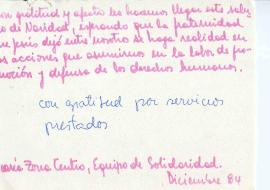 on gratitud y afecto les hacemos llegar este salu
o de Navidad, esperando que la fraternidad
ue Jesús dejó entre nosotros se haga realidad en
as acciones que asumimos en la labor de pro
moción y defensa de los derechos humanos.
con gratitud por servicios
prestados
caría Zona Centro, Equipo de Solidaridad.
Diciembre 84